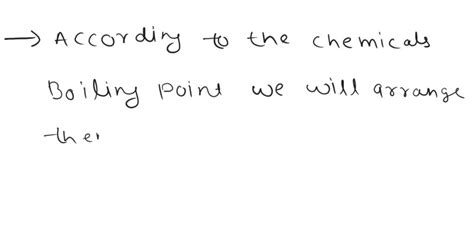 → According to the chemicals
Boiling point we will arrange
the